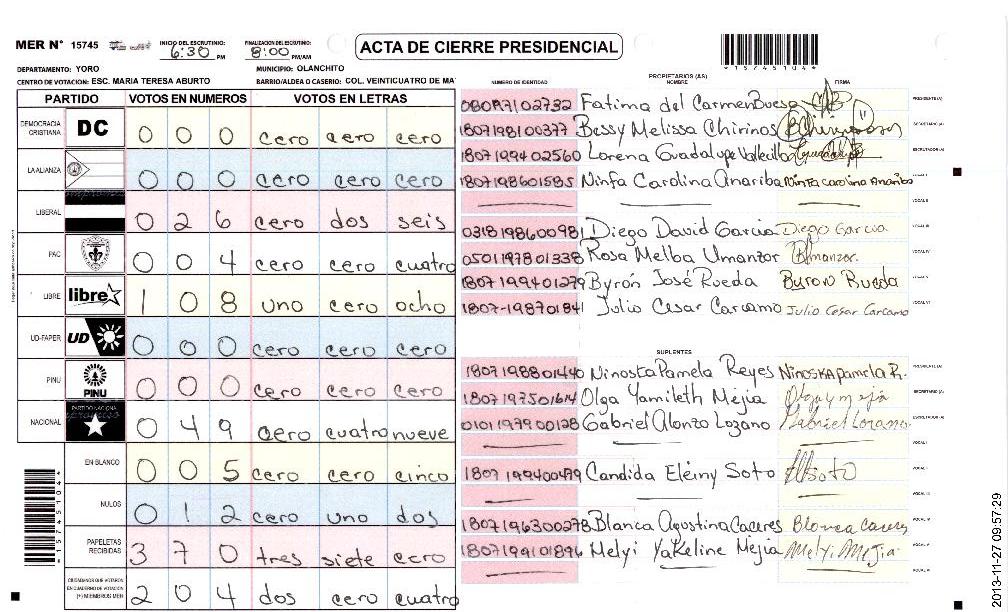 MER N° 15745 INICIO DEL ESCRUTINIO: 6:30 PM FINALIZACION DEL ESCRUTINIO: 8:00 PM/AM ACTA DE CIERRE PRESIDENCIAL
*15745104*
DEPARTAMENTO: YORO MUNICIPIO: OLANCHITO
CENTRO DE VOTACION: ESC. MARIA TERESA ABURTO BARRIO/ALDEA O CASERIO: COL. VEINTICUATRO DE MA
PARTIDO VOTOS EN NUMEROS VOTOS EN LETRAS
DEMOCRACIA CRISTIANA DC 0 0 0 cero cero cero
LA ALIANZA 0 0 0 cero cero cero
LIBERAL 0 2 6 cero dos seis
PAC 0 0 4 cero cero cuatro
LIBRE libre 1 0 8 uno cero ocho
UD-FAPER UD 0 0 0 cero cero cero
PINU PINU 0 0 0 cero cero cero
NACIONAL PARTIDO NACIONAL 0 4 9 cero cuatro nueve
EN BLANCO 0 0 5 cero cero cinco
NULOS 0 1 2 cero uno dos
PAPELETAS RECIBIDAS 3 7 0 tres siete cero
CIUDADANOS QUE VOTARON EN CUADERNO DE VOTACION (+) MIEMBROS MER 2 0 4 dos cero cuatro
*15745104*
PROPIETARIOS (AS)
NUMERO DE IDENTIDAD NOMBRE FIRMA
Fatima del Carmen PRESIDENTE (A)
1807198100377 Bessy Melissa Chirinos SECRETARIO (A)
1807199402560 Lorena Guadalupe ESCRUTADOR (A)
1807198601585 Ninfa Carolina Anariba Ninfa Carolina Anariba VOCAL I
VOCAL II
0318198600981 Diego David Garcia Diego Garcia VOCAL III
0501197801338 Rosa Melba Umanzor VOCAL IV
1807199401279 Byrón José Rueda Byron Rueda VOCAL V
1807-198701841 Julio Cesar Carcamo Julio Cesar Carcamo VOCAL VI
SUPLENTES
1807198801440 Ninoska Pamela Reyes Ninoska Pamela R. PRESIDENTE (A)
1807197501614 Olga Yamileth Mejia Olga y mejia SECRETARIO (A)
0101197900128 Gabriel Alonzo Lozano Gabriel Lozano ESCRUTADOR (A)
VOCAL I
1807199400479 Candida Eleiny Soto VOCAL II
VOCAL III
1807196300278 Blanca Agustina Caceres Blanca Caceres VOCAL IV
1807199101896 Melyi Yakeline Mejia Melyi Mejia VOCAL V
VOCAL VI
2013-11-27 09:57:29